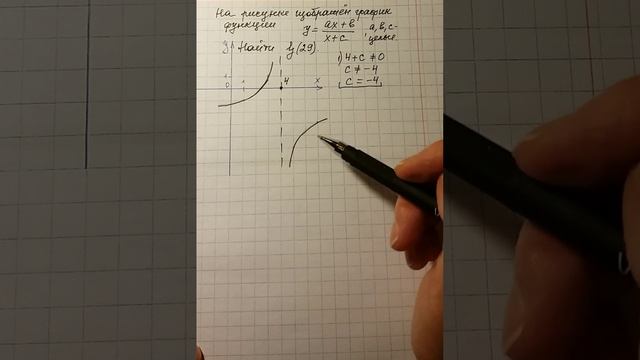 На рисунке изображён график
функции y = (ax + b)/(x + c) a, b, c -
целые.
Найти y(29).
1) 4 + c ≠ 0
c ≠ -4
c = -4
y
1
0
1
4
x